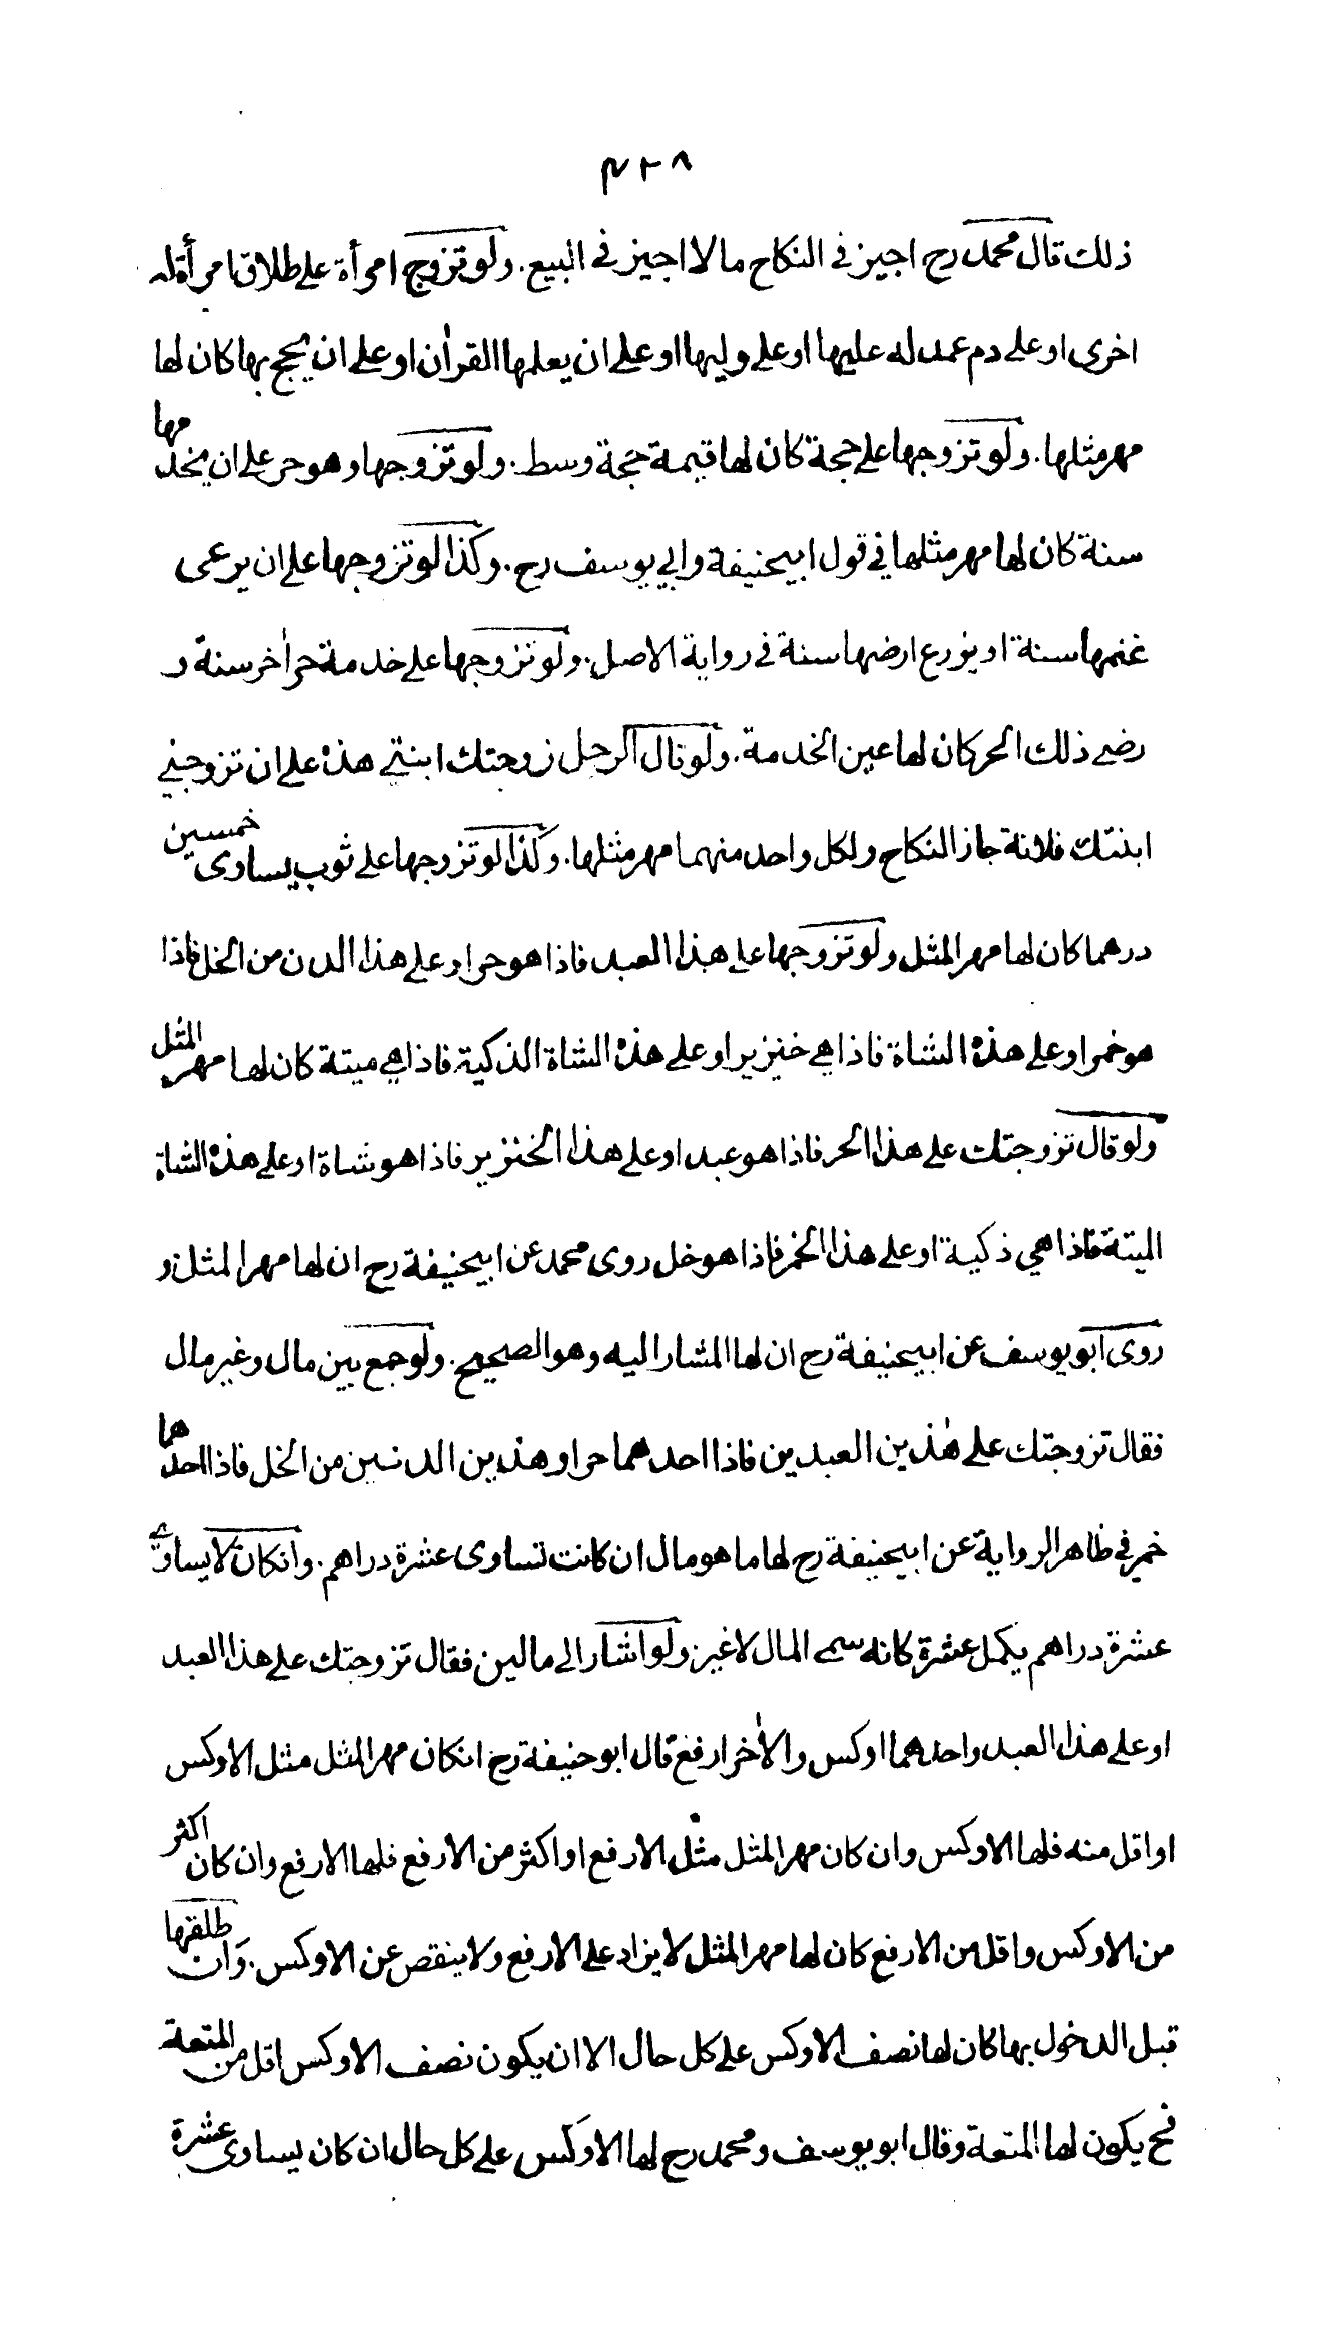 ٤٢٨
ذلك قال محمد رح اجيز في النكاح مالا اجيز في البيع. ولو تزوج امرأة على طلاق امرأة له
اخرى او على دم عمد له عليها او على وليها او على ان يعلمها القرأن او على ان يحج بها كان لها
مهر مثلها. ولو تزوجها على حجة كان لها قيمة حجة وسط. ولو تزوجها وهو حر على ان يخدمها
سنة كان لها مهر مثلها في قول ابيحنيفة وابي يوسف رح. وكذا لو تزوجها على ان يرعى
غنمها سنة او يزرع ارضها سنة في رواية الاصل. ولو تزوجها على خدمة حر أخر سنة و
رضے ذلك الحر كان لها عين الخدمة. ولو قال الرجل زوجتك ابنتے هذه على ان تزوجنے
ابنتك فلانة جاز النكاح ولكل واحد منهما مهر مثلها. وكذا لو تزوجها على ثوب يساوى خمسين
درهما كان لها مهر المثل ولو تزوجها على هذا العبد فاذا هو حر او على هذا الدن من الخل فاذا
هو خمر او على هذه الشاة فاذا هي خنزير او على هذه الشاة الذكية فاذا هي ميتة كان لها مهر المثل
ولو قال تزوجتك على هذا الحر فاذا هو عبد او على هذا الخنزير فاذا هو شاة او على هذه الشاة
الميتة فاذا هي ذكية او على هذا الخمر فاذا هو خل روى محمد عن ابيحنيفة رح ان لها مهر المثل و
روى ابو يوسف عن ابيحنيفة رح ان لها المشار اليه وهو الصحيح. ولو جمع بين مال وغير مال
فقال تزوجتك على هٰذين العبدين فاذا احدهما حر او هذين الدنين من الخل فاذا احدهما
خمر في ظاهر الرواية عن ابيحنيفة رح لها ما هو مال ان كانت تساوى عشرة دراهم. وانكان لا يساوے
عشرة دراهم يكمل عشرة كانه سمے المال لا غير ولو اشار الى مالين فقال تزوجتك على هذا العبد
او على هذا العبد واحدهما اوكس والأخر ارفع قال ابو حنيفة رح انكان مهر المثل مثل الاوكس
او اقل منه فلها الاوكس وان كان مهر المثل مثل الارفع او اكثر من الارفع فلها الارفع وان كان اكثر
من الاوكس واقل من الارفع كان لها مهر المثل لا يزاد على الارفع ولا ينقص عن الاوكس. وان طلقها
قبل الدخول بها كان لها نصف الاوكس على كل حال الا ان يكون نصف الاوكس اقل من المتعة
فح يكون لها المتعة وقال ابو يوسف ومحمد رح لها الاوكس على كل حال ان كان يساوى عشرة